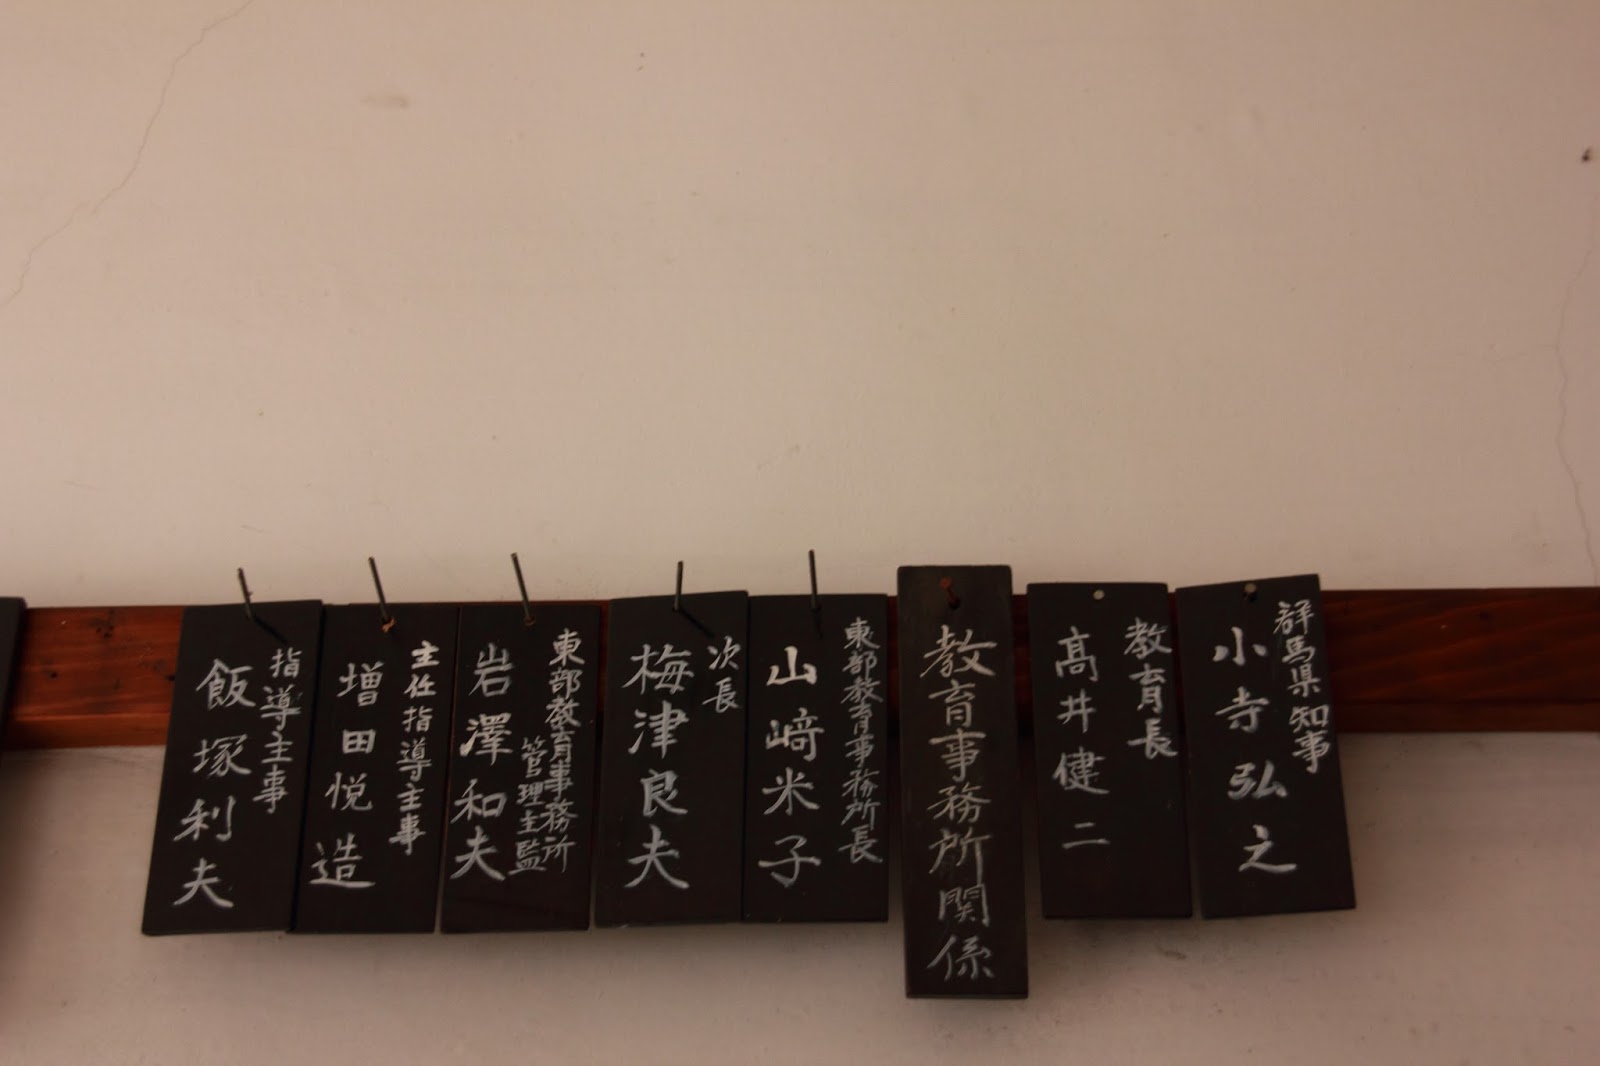 群馬県知事
小寺弘之
教育長
髙井健二
教育事務所関係
東部教育事務所長
山﨑米子
次長
梅津良夫
東部教育事務所
管理主監
岩澤和夫
主任指導主事
増田悦造
指導主事
飯塚利夫